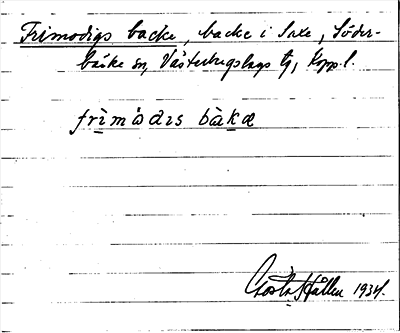 Frimodigs backe, backe i Saxe, Söder-
bärke sn, Västerbergslags tg, Kopp. l.
frìmòdɩs bàkæ
Gösta Hållen 1934.